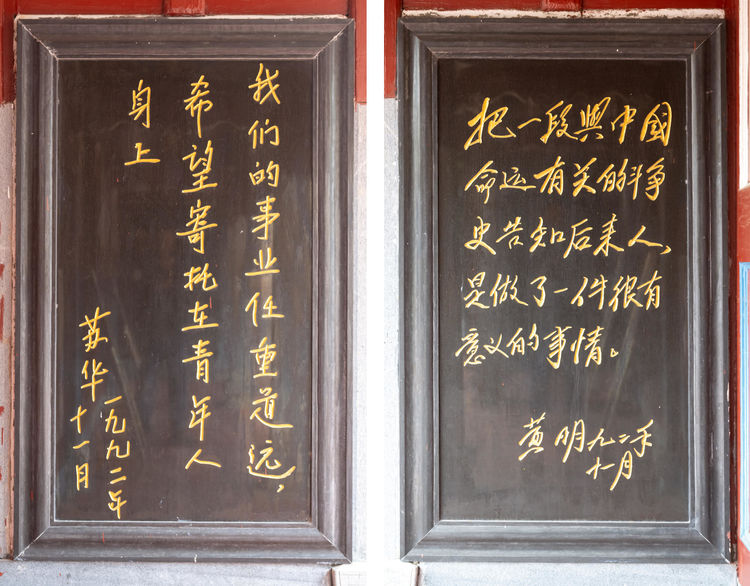 我们的事业任重道远，
希望寄托在青年人
身上
苏华一九九二年
十一月
把一段與中國
命运有关的斗争
史告知后来人，
是做了一件很有
意义的事情。
黄明九二年
十一月